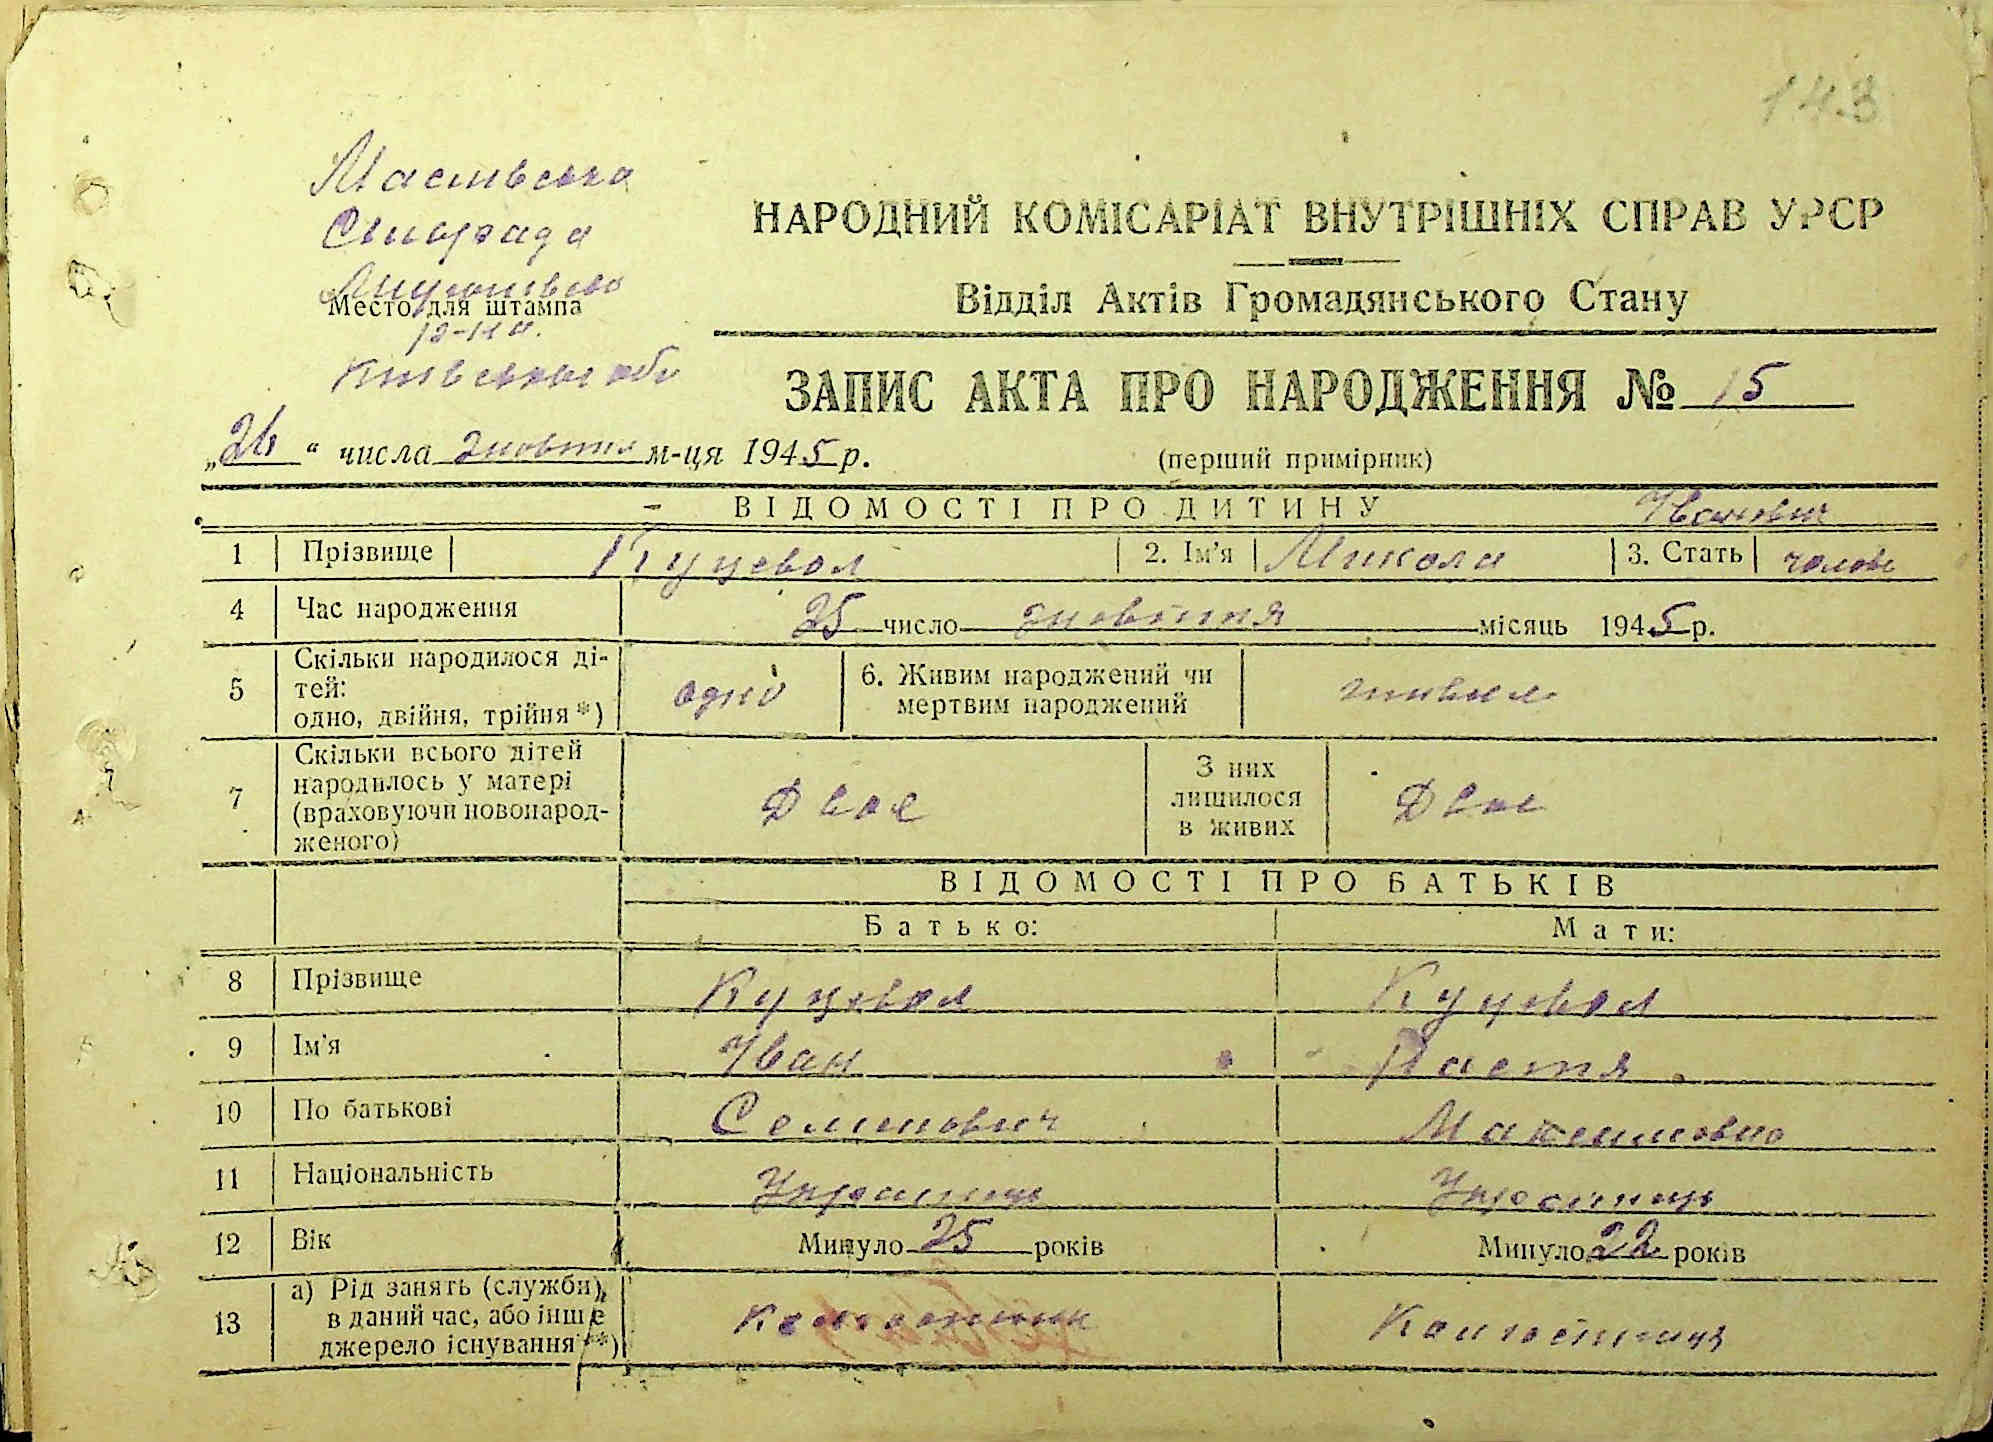 143
Маслівська
Сільрада
Место для штампа
р-на
Київської обл
НАРОДНИЙ КОМІСАРІАТ ВНУТРІШНІХ СПРАВ УРСР
Відділ Актів Громадянського Стану
ЗАПИС АКТА ПРО НАРОДЖЕННЯ № 15
„26“ числа жовтня м-ця 1945 р.
(перший примірник)
ВІДОМОСТІ ПРО ДИТИНУ
Іванович
1 Прізвище Куцевол 2. Ім'я Микола 3. Стать чолові
4 Час народження 25 число жовтня місяць 1945 р.
5 Скільки народилося ді-
тей:
одно, двійня, трійня *)
одно
6. Живим народжений чи
мертвим народжений
живим
7 Скільки всього дітей
народилось у матері
(враховуючи новонарод-
женого)
Двоє
З них
лишилося
в живих
Двоє
ВІДОМОСТІ ПРО БАТЬКІВ
Батько: Мати:
8 Прізвище Куцевол Куцевол
9 Ім'я Іван Настя
10 По батькові Семенович Максимовна
11 Національність Українець Українець
12 Вік Минуло 25 років Минуло 22 років
13 а) Рід занять (служби),
в даний час, або інше
джерело існування **)
Колгоспник Колгоспниця